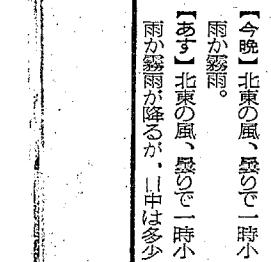 【今晩】北東の風、曇りで一時小
雨か霧雨。
【あす】北東の風、曇りで一時小
雨か霧雨が降るが、日中は多少